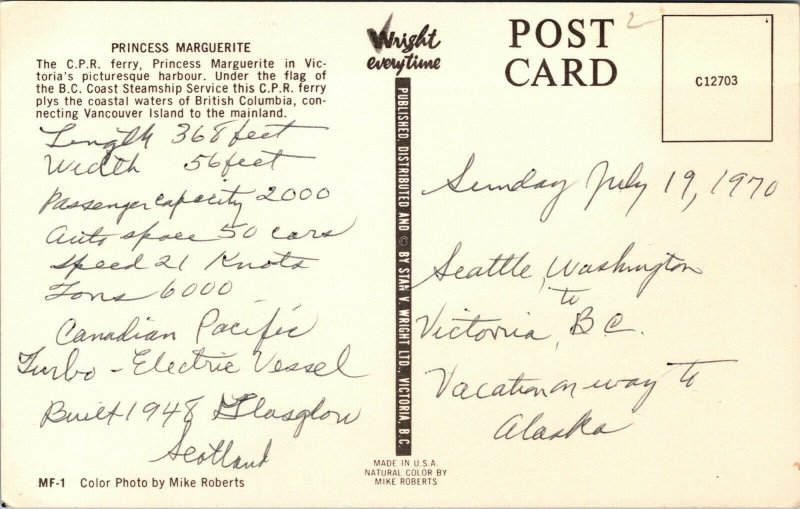 PRINCESS MARGUERITE
The C.P.R. ferry, Princess Marguerite in Vic-
toria's picturesque harbour. Under the flag of
the B.C. Coast Steamship Service this C.P.R. ferry
plys the coastal waters of British Columbia, con-
necting Vancouver Island to the mainland.
Length 368 feet
Width 56 feet
Passenger capacity 2000
Auto space 50 cars
Speed 21 Knots
Tons 6000
Canadian Pacific
Turbo - Electric Vessel
Built 1948 Glasglow
Scotland
MF-1 Color Photo by Mike Roberts
Wright
everytime
PUBLISHED, DISTRIBUTED AND © BY STAN V. WRIGHT LTD., VICTORIA, B.C.
MADE IN U.S.A.
NATURAL COLOR BY
MIKE ROBERTS
POST
CARD
2
C12703
Sunday July 19, 1970
Seattle, Washington
to
Victorria, B.C.
Vacation on way to
Alaska